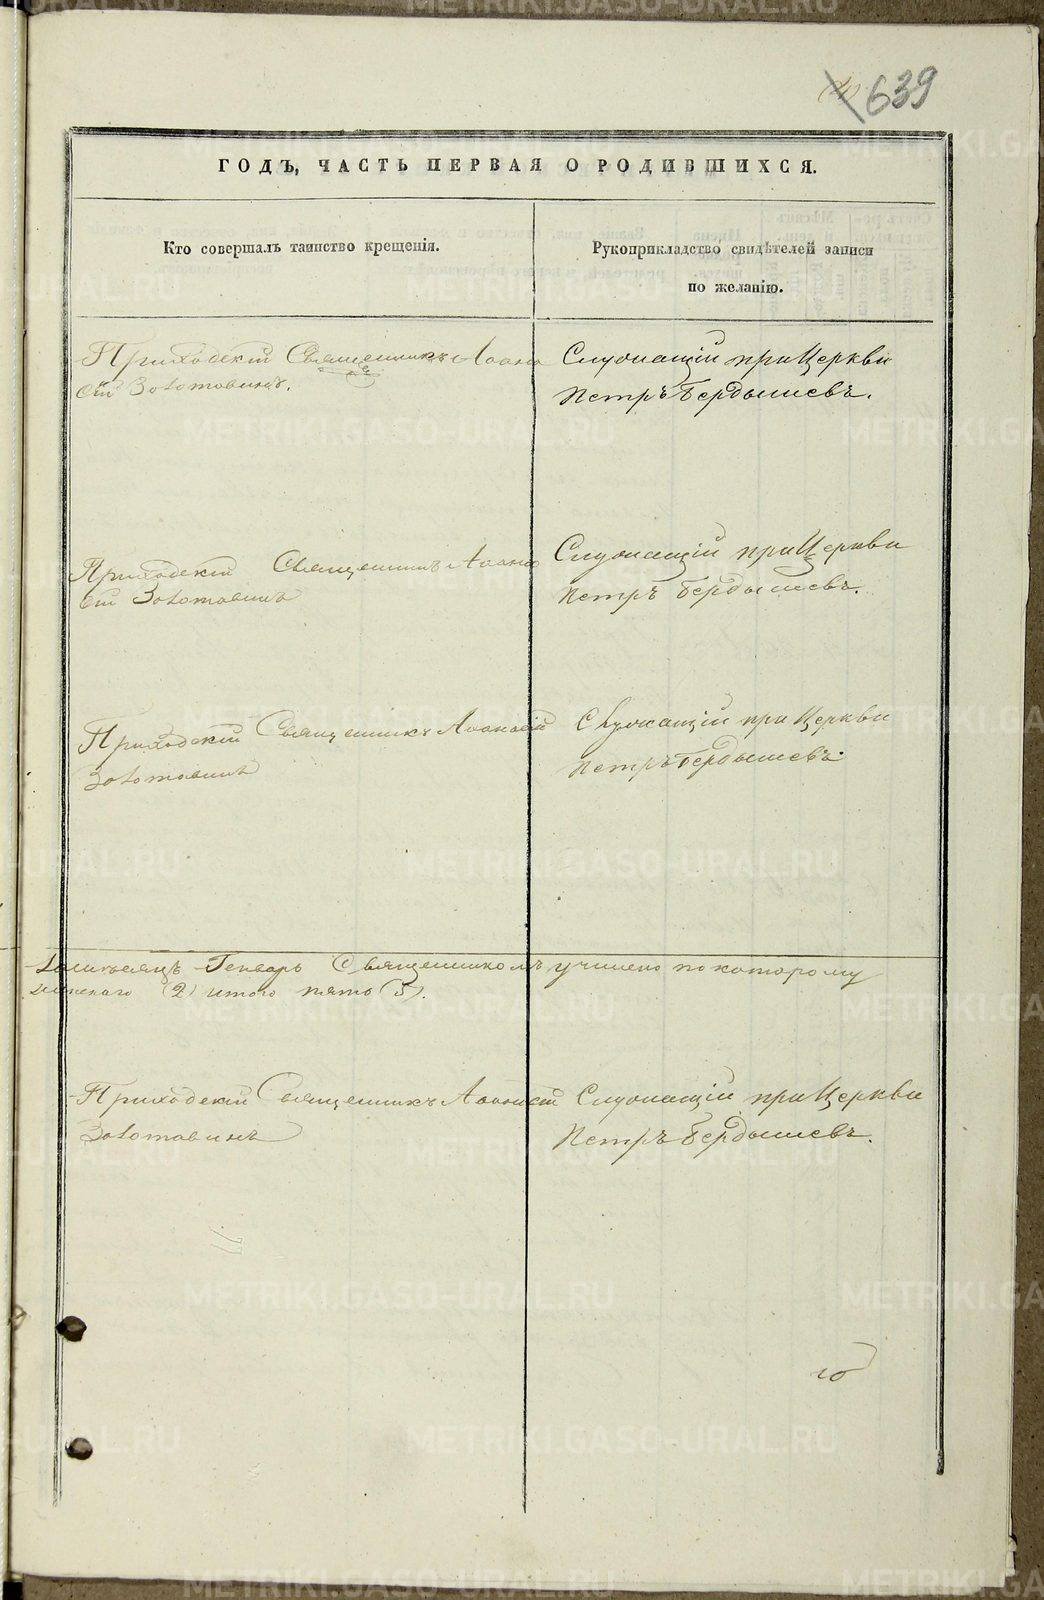 639
ГОДЪ, ЧАСТЬ ПЕРВАЯ О РОДИВШИХСЯ.
Кто совершалъ таинство крещенія.
Рукоприкладство свидѣтелей записи
по желанію.
Приходскій Священникъ Аѳана
сій Золотавинъ.
Служащій при Церкви
Петръ Бердышевъ.
Приходскій Священникъ Аѳана
сій Золотавинъ
Служащій при Церкви
Петръ Бердышевъ.
Приходскій Священникъ Аѳанасій
Золотавинъ
Служащій при Церкви
Петръ Бердышевъ.
Генварь Священникомъ учинено по которому
(2) итого пять (5).
Приходскій Священникъ Аѳанасій
Золотавинъ
Служащій при Церкви
Петръ Бердышевъ.
METRIKI.GASO-URAL.RU